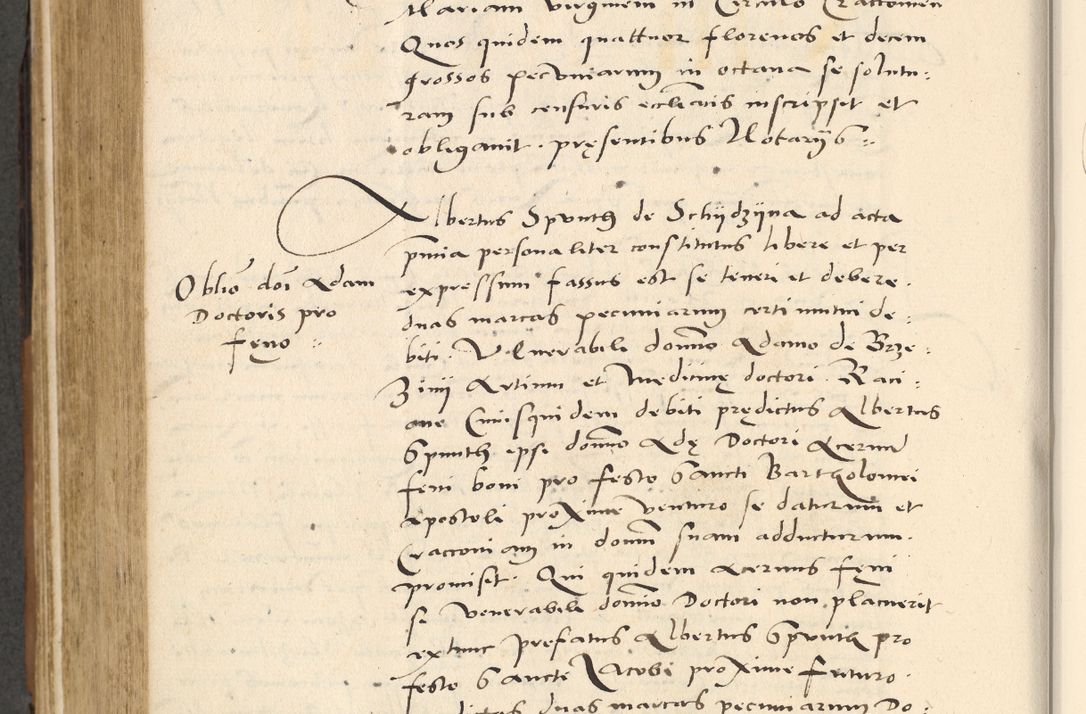 Mariam virginem in Circulo Cracconien
Quos quidem quattuor florenos et decem
grossos pecuniarum in octava se solutu:
ram sub censuris ecclīaīs inscripsit et
obligavit. pręsentibus Notarÿs:.
Albertus Spunth de Schÿdzÿna ad acta
pn̄tia personaliter constitutus libere et per
expressum fassus est se teneri et debere.
duas marcas pecuniarum certi mutui de:
biti. Venerabili domīo Adamo de Brze:
Zinÿ Artium et Medicinę doctori. Raci:
one Cuiusquidem debiti prędictus Albertus
Spunth ipsi domīo Adę Doctori Acervū
feni boni pro festo Sancti Bartholomei
Apostoli proxime venturo se daturum et
Cracconiam in domū suam adducturum.
promisit. Qui quidem Acervus fęni
si venerabili domīo Doctori non placuerit
extunc prefatus Albertus Spunth pro
festo Sancti Jacobi proxime futuro.
duas marcas pecuniarum Do:
Oblīo doī Adam
Doctoris pro
fęno:.